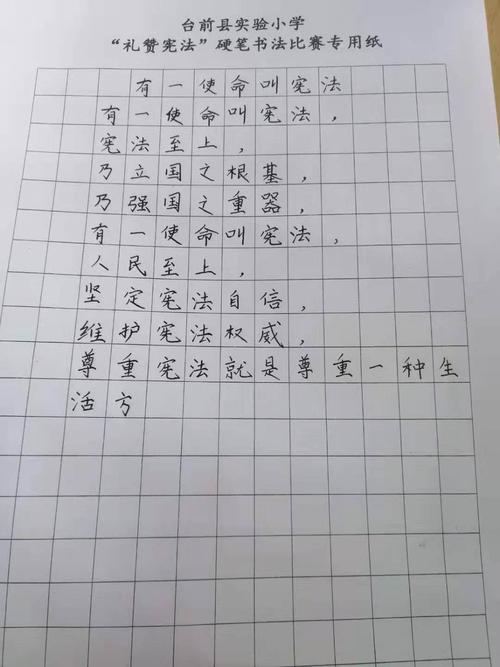 台前县实验小学
“礼赞宪法”硬笔书法比赛专用纸
有一使命叫宪法
有一使命叫宪法，
宪法至上，
乃立国之根基，
乃强国之重器，
有一使命叫宪法，
人民至上，
坚定宪法自信，
维护宪法权威，
尊重宪法就是尊重一种生
活方